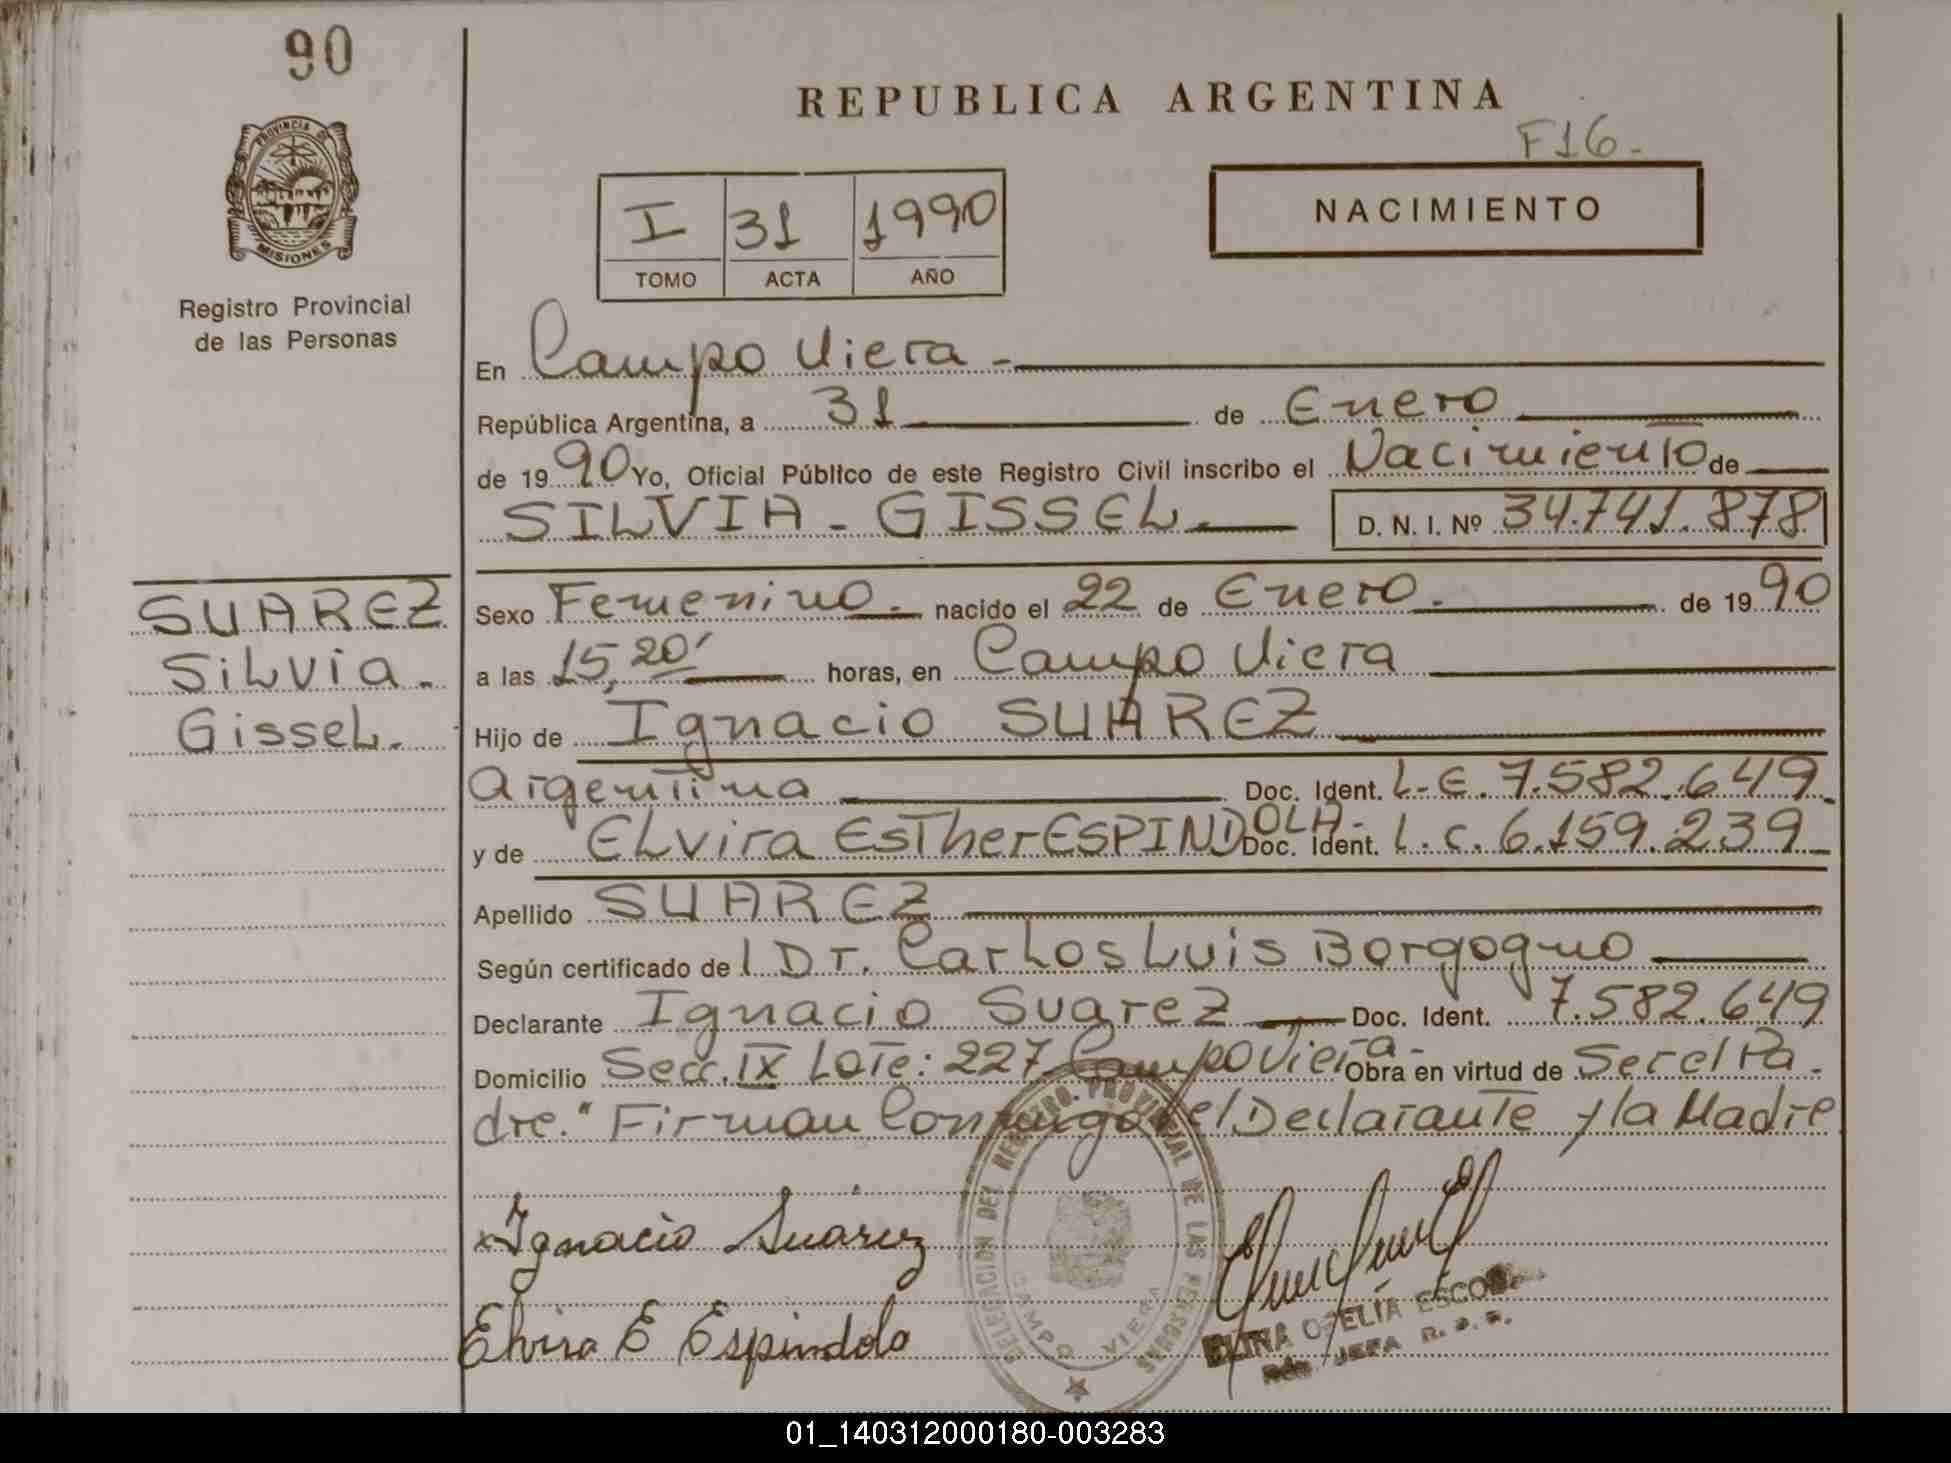 90
PROVINCIA DE
MISIONES
Registro Provincial
de las Personas
REPUBLICA ARGENTINA
F16.
I 31 1990
TOMO ACTA AÑO
NACIMIENTO
En Campo Viera -
República Argentina, a 31 de Enero
de 1990 Yo, Oficial Público de este Registro Civil inscribo el Nacimiento de
SILVIA - GISSEL. D. N. I. Nº 34.741.878
SUAREZ
Silvia.
Gissel.
Sexo Femenino. nacido el 22 de Enero. de 1990
a las 15,20' horas, en Campo Viera
Hijo de Ignacio SUAREZ
Argentina Doc. Ident. L.E. 7.582.649
y de Elvira Esther ESPINDOLA- Doc. Ident. L.C. 6.159.239
Apellido SUAREZ
Según certificado de l Dr. Carlos Luis Borgogno
Declarante Ignacio Suarez Doc. Ident. 7.582.649
Domicilio Secc. IX Lote: 227 Campo Viera- Obra en virtud de Ser el Pa
dre." Firman Conmigo el Declarante y la Madre
x Ignacio Suárez
Elvira E Espindola
DELEGACION DEL REGISTRO PROVINCIAL DE LAS PERSONAS
CAMPO VIERA
OFELIA
JEFA R. P. P.
01_140312000180-003283